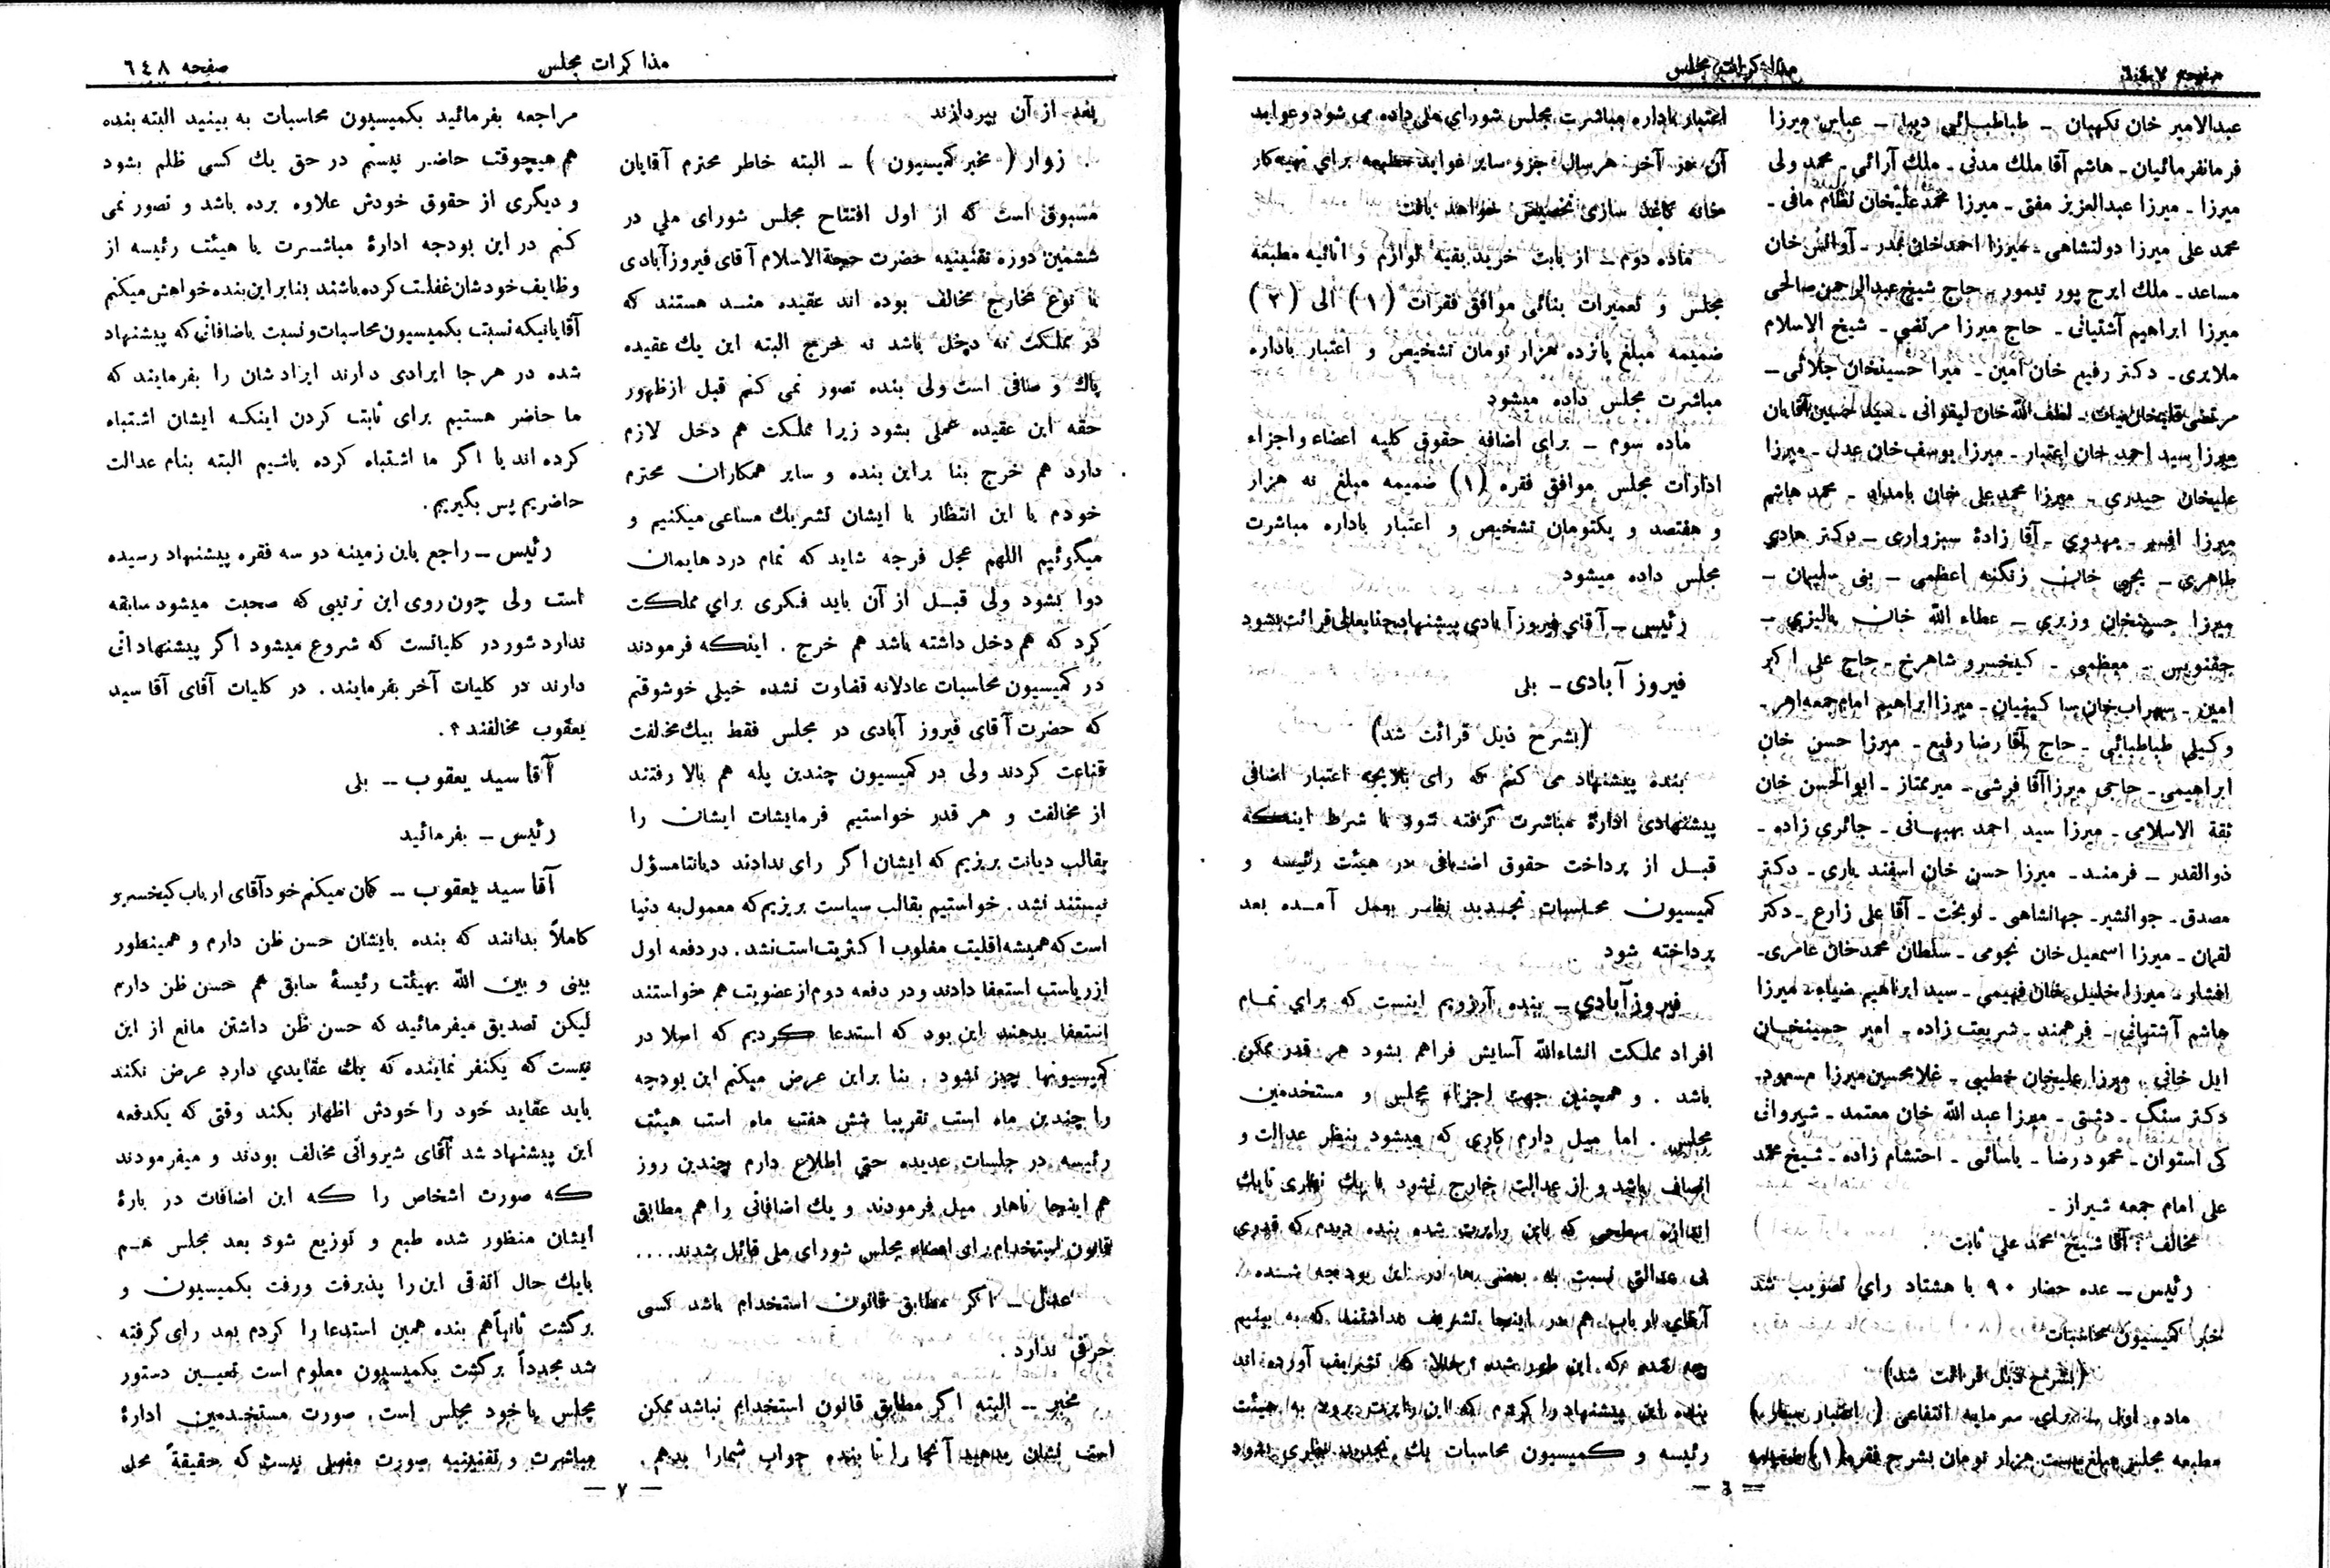 صفحه ٦٤٧
مذاکرات مجلس
عبدالامیر خان نگهبان – طباطبائی دیبا – عباس میرزا
فرمانفرمائیان – هاشم آقا ملك مدنی – ملك آرائی – محمد ولی
میرزا – میرزا عبدالعزیز مفتی – میرزا محمد علیخان نظام مافی –
محمد علی میرزا دولتشاهی – میرزا احمد خان بدر – آوانس خان
مساعد – ملك ایرج پور تیمور – حاج شیخ عبدالرحمن صالحی
میرزا ابراهیم آشتیانی – حاج میرزا مرتضی – شیخ الاسلام
ملایری – دکتر رفیع خان امین – میرزا حسینخان جلائی –
مرتضی قلیخان بیات – لطف الله خان لیقوانی – سید حسین آقایان
میرزا سید احمد خان اعتبار – میرزا یوسف خان عدل – میرزا
علیخان حیدری – میرزا محمد علی خان بامداد – محمد هاشم
میرزا افسر – مهدوی – آقا زادهٔ سبزواری – دکتر هادی
طاهری – یحیی خان زنگنه اعظمی – بنی سلیمان –
میرزا حسینخان وزیری – عطاء الله خان پالیزی –
جقنویس – معظمی – کیخسرو شاهرخ – حاج علی اکبر
امین – سهراب خان ساکینیان – میرزا ابراهیم امام جمعه اهر –
وکیلی طباطبائی – حاج آقا رضا رفیع – میرزا حسن خان
ابراهیمی – حاجی میرزا آقا فرشی – میرممتاز – ابوالحسن خان
ثقة الاسلامی – میرزا سید احمد بهبهانی – جائری زاده –
ذوالقدر – فرمند – میرزا حسن خان اسفندیاری – دکتر
مصدق – جوانشیر – جهانشاهی – نوبخت – آقا علی زارع – دکتر
لقمان – میرزا اسمعیل خان نجومی – سلطان محمد خان عامری –
افشار – میرزا خلیل خان فهیمی – سید ابراهیم ضیاء – میرزا
هاشم آشتیانی – فرهمند – شریعت زاده – امیر حسینخان
ایل خانی – میرزا علیخان خطیبی – غلامحسین میرزا مسعود –
دکتر سنگ – دشتی – میرزا عبد الله خان معتمد – شیروانی
کی استوان – محمود رضا – یاسائی – احتشام زاده – شیخ محمد
علی امام جمعه شیراز –
مخالف : آقا شیخ محمد علی ثابت .
رئیس – عده حضار ۹۰ با هشتاد رای تصویب شد
خبر کمیسیون محاسبات
(بشرح ذیل قرائت شد)
ماده اول – برای سرمایه انتفاعی ( اعتبار سیار )
مطبعه مجلس مبلغ بیست هزار تومان بشرح فقره (۱) ضمیمه
اعتبار باداره مباشرت مجلس شورای ملی داده می شود و عواید
آن در آخر هر سال جزو سایر عواید مطبعه برای تهیه کار
خانه کاغذ سازی تخصیص خواهد یافت
ماده دوم – از بابت خرید بقیه لوازم و اثاثیه مطبعه
مجلس و تعمیرات بنائی موافق فقرات (۱) الی (۲)
ضمیمه مبلغ پانزده هزار تومان تشخیص و اعتبار باداره
مباشرت مجلس داده میشود
ماده سوم – برای اضافه حقوق کلیه اعضاء و اجزاء
ادارات مجلس موافق فقره (۱) ضمیمه مبلغ نه هزار
و هفتصد و یکتومان تشخیص و اعتبار باداره مباشرت
مجلس داده میشود
رئیس – آقای فیروز آبادی پیشنهاد جنابعالی قرائت بشود
فیروز آبادی – بلی
(بشرح ذیل قرائت شد)
بنده پیشنهاد می کنم که رای بلایحه اعتبار اضافی
پیشنهادی ادارهٔ مباشرت گرفته شود با شرط اینکه
قبل از پرداخت حقوق اضافی در هیئت رئیسه و
کمیسیون محاسبات تجدید نظر بعمل آمده بعد
پرداخته شود
فیروز آبادی – بنده آرزویم اینست که برای تمام
افراد مملکت انشاءالله آسایش فراهم بشود هر قدر ممکن
باشد . و همچنین جهت اجزاء مجلس و مستخدمین
مجلس . اما میل دارم کاری که میشود بنظر عدالت و
انصاف باشد و از عدالت خارج نشود با یك نظری تا یك
اندازه سطحی که باین راپرت شده بنده دیدم که قدری
بی عدالتی نسبت به بعضی ها در این بودجه شده .
آقای ارباب هم در اینجا تشریف نداشتند که به بینیم
چه شده که این طور شده حالا که تشریف آورده اند
بنده این پیشنهاد را کردم که این راپرت برود به هیئت
رئیسه و کمیسیون محاسبات یك تجدید نظری بشود
— ٦ —
مذاکرات مجلس
صفحه ٦٤٨
بعد از آن بپردازند
زوار ( مخبر کمیسیون ) – البته خاطر محترم آقایان
مسبوق است که از اول افتتاح مجلس شورای ملی در
ششمین دوره تقنینیه حضرت حجةالاسلام آقای فیروزآبادی
با نوع مخارج مخالف بوده اند عقیده مند هستند که
در مملکت نه دخل باشد نه خرج البته این یك عقیده
پاك و صافی است ولی بنده تصور نمی کنم قبل از ظهور
حقه این عقیده عملی بشود زیرا مملکت هم دخل لازم
دارد هم خرج بنا بر این بنده و سایر همکاران محترم
خودم با این انتظار با ایشان تشریك مساعی میکنیم و
میگوئیم اللهم عجل فرجه شاید که تمام درد هایمان
دوا بشود ولی قبل از آن باید فکری برای مملکت
کرد که هم دخل داشته باشد هم خرج . اینکه فرمودند
در کمیسیون محاسبات عادلانه قضاوت نشده خیلی خوشوقتم
که حضرت آقای فیروز آبادی در مجلس فقط بیك مخالفت
قناعت کردند ولی در کمیسیون چندین پله هم بالا رفتند
از مخالفت و هر قدر خواستیم فرمایشات ایشان را
بقالب دیانت بریزیم که ایشان اگر رای ندادند دیانتا مسؤل
نیستند نشد . خواستیم بقالب سیاست بریزیم که معمول به دنیا
است که همیشه اقلیت مغلوب اکثریت است نشد . در دفعه اول
از ریاست استعفا دادند و در دفعه دوم از عضویت هم خواستند
استعفا بدهند این بود که استدعا کردیم که اصلا در
کمیسیونها چیز نشود . بنا بر این عرض میکنم این بودجه
را چندین ماه است تقریبا شش هفت ماه است هیئت
رئیسه در جلسات عدیده حتی اطلاع دارم چندین روز
هم اینجا ناهار میل فرمودند و یك اضافاتی را هم مطابق
قانون استخدام برای اعضاء مجلس شورای ملی قائل شدند....
عدل – اگر مطابق قانون استخدام باشد کسی
حرفی ندارد .
مخبر – البته اگر مطابق قانون استخدام نباشد ممکن
است نشان بدهید آنجا را تا بنده جواب شما را بدهم .
مراجعه بفرمائید بکمیسیون محاسبات به بینید البته بنده
هم هیچوقت حاضر نیستم در حق یك کسی ظلم بشود
و دیگری از حقوق خودش علاوه برده باشد و تصور نمی
کنم در این بودجه ادارهٔ مباشرت یا هیئت رئیسه از
وظایف خودشان غفلت کرده باشند بنابر این بنده خواهش میکنم
آقایانیکه نسبت بکمیسیون محاسبات و نسبت باضافاتی که پیشنهاد
شده در هر جا ایرادی دارند ایرادشان را بفرمایند که
ما حاضر هستیم برای ثابت کردن اینکه ایشان اشتباه
کرده اند یا اگر ما اشتباه کرده باشیم البته بنام عدالت
حاضریم پس بگیریم .
رئیس – راجع باین زمینه دو سه فقره پیشنهاد رسیده
است ولی چون روی این ترتیبی که صحبت میشود سابقه
ندارد شور در کلیاتست که شروع میشود اگر پیشنهاداتی
دارند در کلیات آخر بفرمایند . در کلیات آقای آقا سید
یعقوب مخالفند ؟ .
آقا سید یعقوب – بلی
رئیس – بفرمائید
آقا سید یعقوب – گمان میکنم خود آقای ارباب کیخسرو
کاملاً بدانند که بنده بایشان حسن ظن دارم و همینطور
بینی و بین الله بهیئت رئیسهٔ سابق هم حسن ظن دارم
لیکن تصدیق میفرمائید که حسن ظن داشتن مانع از این
نیست که یکنفر نماینده که یك عقایدی دارد عرض نکند
باید عقاید خود را خودش اظهار بکند وقتی که یکدفعه
این پیشنهاد شد آقای شیروانی مخالف بودند و میفرمودند
که صورت اشخاص را که این اضافات در بارهٔ
ایشان منظور شده طبع و توزیع شود بعد مجلس هم
بایك حال اتفاقی این را پذیرفت ورفت بکمیسیون و
برگشت ثانیاً هم بنده همین استدعا را کردم بعد رای گرفته
شد مجدداً برگشت بکمیسیون معلوم است تعیین دستور
مجلس با خود مجلس است . صورت مستخدمین ادارهٔ
مباشرت و تقنینیه صورت مفصلی نیست که حقیقةً محل
— ٧ —